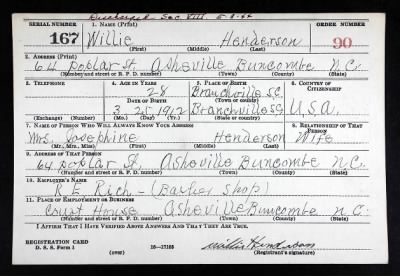 Discharged - Sec. VIII 5-8-44
SERIAL NUMBER 1. NAME (Print) ORDER NUMBER
167 Willie Henderson 90
(First) (Middle) (Last)
2. ADDRESS (Print)
64 Poplar St. Asheville Buncombe N.C.
(Number and street or R. F. D. number) (Town) (County) (State)
3. TELEPHONE 4. AGE IN YEARS 5. PLACE OF BIRTH 6. COUNTRY OF CITIZENSHIP
28 Branchville S.C.
DATE OF BIRTH (Town or county)
3-25-1912 Branchville SC U.S.A.
(Exchange) (Number) (Mo.) (Day) (Yr.) (State or country)
7. NAME OF PERSON WHO WILL ALWAYS KNOW YOUR ADDRESS 8. RELATIONSHIP OF THAT PERSON
Mrs. Josephine Henderson Wife
(Mr., Mrs., Miss) (First) (Middle) (Last)
9. ADDRESS OF THAT PERSON
64 Poplar St. Asheville Buncombe N.C.
(Number and street or R. F. D. number) (Town) (County) (State)
10. EMPLOYER'S NAME
R E Rich - (Barber Shop)
11. PLACE OF EMPLOYMENT OR BUSINESS
Court House Asheville Buncombe N.C.
(Number and street or R. F. D. number) (Town) (County) (State)
I AFFIRM THAT I HAVE VERIFIED ABOVE ANSWERS AND THAT THEY ARE TRUE.
REGISTRATION CARD
D. S. S. Form 1 (over) 16-17105 Willie Henderson
(Registrant's signature)